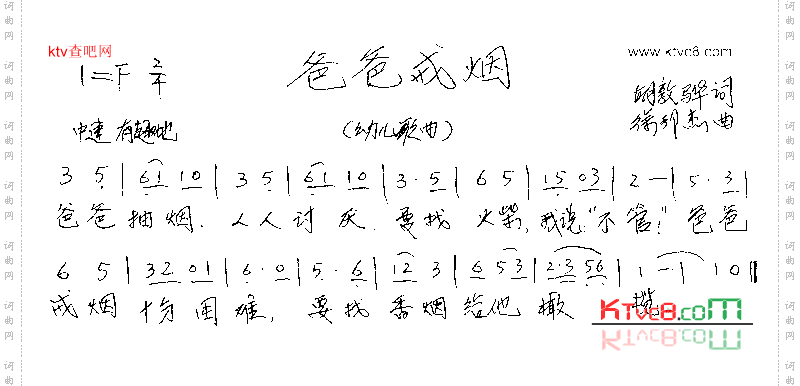 ktv查吧网
www.ktvc8.com
1=F 2/4
爸爸戒烟
胡敦骅词
徐邦杰曲
中速 有趣地
(幼儿歌曲)
3 5 | 61 10 | 3 5 | 61 10 | 3·5 | 6 5 | 15 03 | 2 — | 5·3 |
爸爸抽烟,人人讨厌,要找火柴,我说:"不管!"爸爸
6 5 | 32 01 | 6·0 | 5·6 | 12 3 | 6 53 | 2·3 56 | 1 — | 10 ‖
戒烟十分困难,要找香烟给他撒
KTVC8.COM
词曲网 词曲网 词曲网 词曲网 词曲网